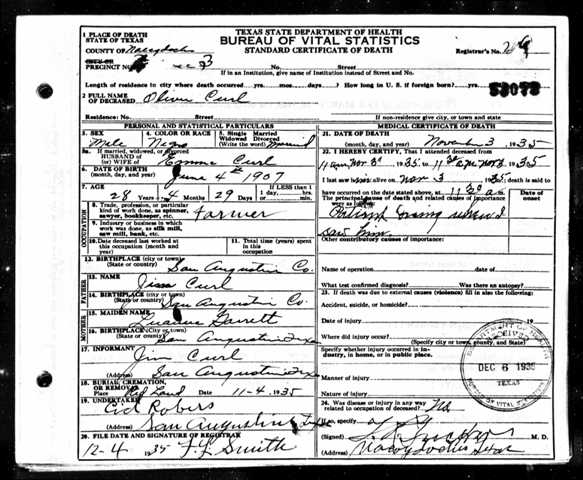 TEXAS STATE DEPARTMENT OF HEALTH
BUREAU OF VITAL STATISTICS
STANDARD CERTIFICATE OF DEATH
1 PLACE OF DEATH
STATE OF TEXAS
COUNTY OF Nacogdoches
Registrar's No.
CITY OR
PRECINCT No. 3 No. Street
If in an Institution, give name of Institution instead of Street and No.
Length of residence in city where death occurred yrs. mos. days? How long in U. S. if foreign born? yrs.
53073
2 FULL NAME
OF DECEASED Oliver Curl
Residence: No. Street
If non-residence give city, or town and state
PERSONAL AND STATISTICAL PARTICULARS
3. SEX
Male
4. COLOR OR RACE
Negro
5. Single Married
Widowed Divorced
(Write the word) Married
5a. If married, widowed, or
HUSBAND of
(or) WIFE of Emma Curl
6. DATE OF BIRTH
(month, day, and year) June 4th 1907
7. AGE
28 Years 4 Months 29 Days
If LESS than
1 day, hrs.
or min.
OCCUPATION
8. Trade, profession, or particular
kind of work done, as spinner,
sawyer, bookkeeper, etc. Farmer
9. Industry or business in which
work was done, as silk mill,
saw mill, bank, etc.
10. Date deceased last worked at
this occupation (month and
year)
11. Total time (years) spent in
this occupation
12. BIRTHPLACE (city or town)
(State or country) San Augustine Co.
FATHER
13. NAME
Jim Curl
14. BIRTHPLACE (city or town)
(State or country) San Augustine Co.
MOTHER
15. MAIDEN NAME
Garrett
16. BIRTHPLACE (city or town)
(State or country) San Augustine Texas
17. INFORMANT
Jim Curl
(Address) San Augustine Tex
18. BURIAL, CREMATION,
OR REMOVAL
Place Red Land Date 11-4 1935
19. UNDERTAKER
Cid Robers
(Address) San Augustine Tex
20. FILE DATE AND SIGNATURE OF REGISTRAR
12-4 1935 F L Smith
MEDICAL CERTIFICATE OF DEATH
21. DATE OF DEATH
(month, day, and year) November 3, 1935
22. I HEREBY CERTIFY, That I attended deceased from
Nov 3 1935 to Nov 3 1935
I last saw him alive on Nov 3 1935; death is said to
have occurred on the date stated above, at 11
The principal cause of death and related causes of importance
were as follows:
Date of
onset
saw
Other contributory causes of importance:
Name of operation date of
What test confirmed diagnosis? Was there an autopsy?
23. If death was due to external causes (violence) fill in also the following:
Accident, suicide, or homicide?
Date of injury 19
Where did injury occur?
(Specify city or town, county, and State)
Specify whether injury occurred in
industry, in home, or in public place.
Manner of injury
Nature of injury
24. Was disease or injury in any way
related to occupation of deceased? No
If so, specify
(Signed) M. D.
(Address) Nacogdoches Texas
DEPARTMENT OF HEALTH
RECEIVED
DEC 6 1935
TEXAS
BUREAU OF VITAL STATISTICS